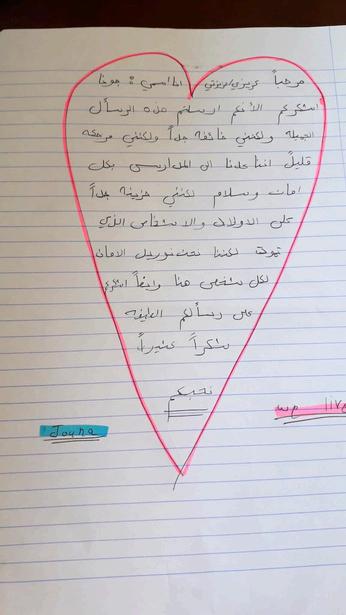 مرحباً عزيزي/عزيزتي انا اسمي : جونا
اشكركم لأنكم ارسلتم هذه الرسأل
الجميلة ولكنني خائفة جداً ولكنني
قليلً اننا عدنا الى المدارس بكل
امان وسلام لكنني حزينة جداً
على الاولاد والاشخاص الذي
تموت لكننا نحن نوريد الامان
لكل شخص هنا وايضاً اشكركم
على رسألكم الطيفه
شكراً كثيراً
نحبكم
we live
Jouna